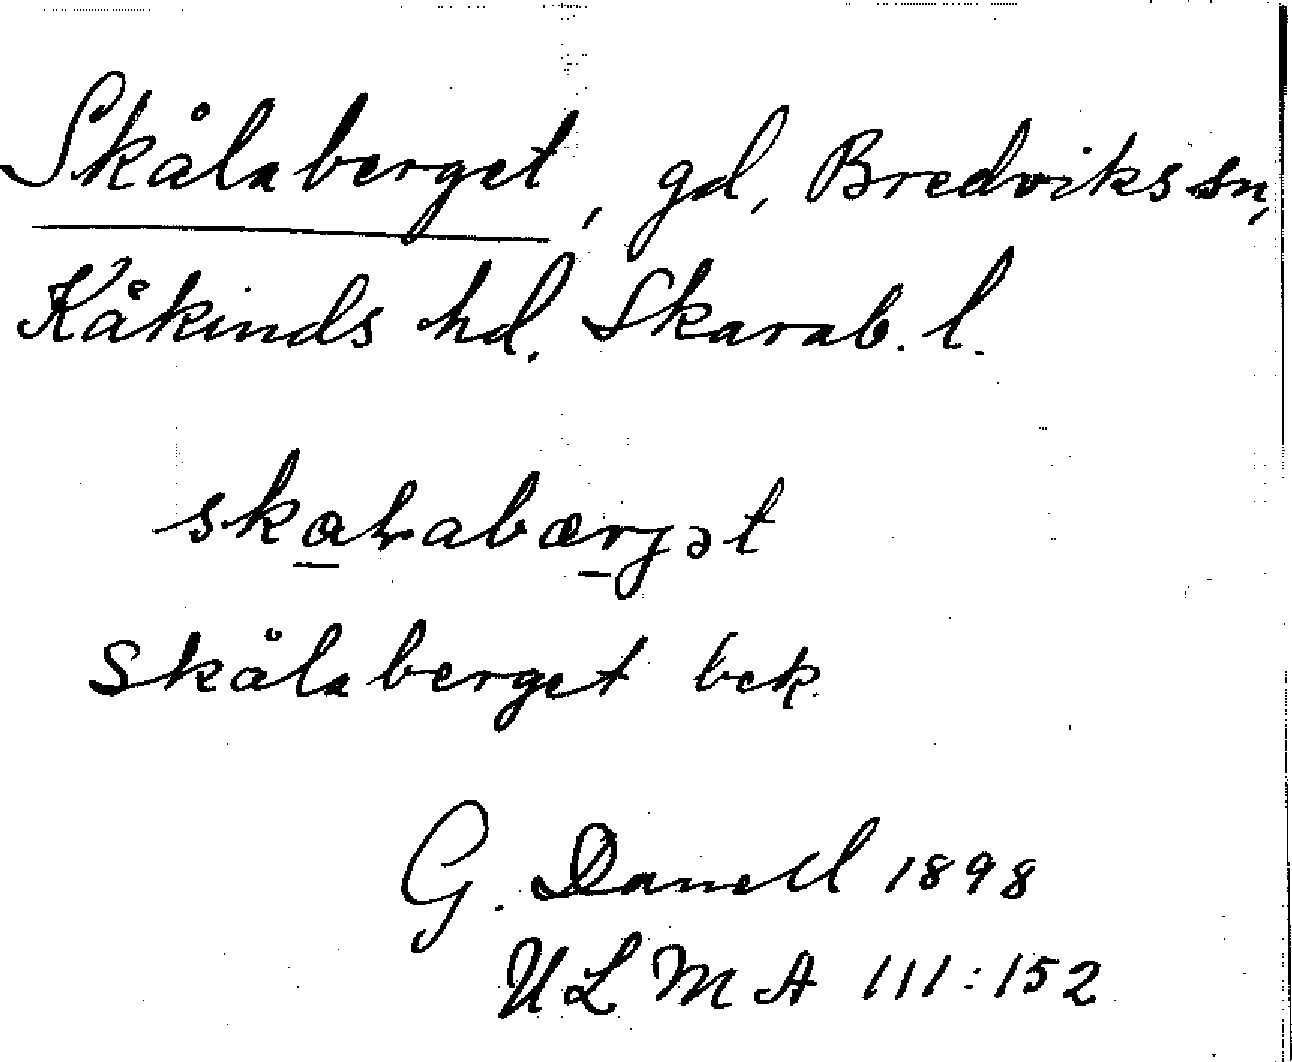 Skålaberget, gd, Bredviks sn,
Kåkinds hd. Skarab. l.
skaƚabærjət
Skålaberget bek.
G. Danell 1898
ULMA 111:152